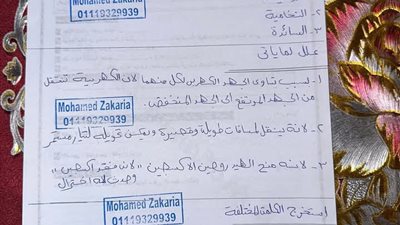 Mohamed Zakaria
01119329939
٢- النخامية
٣- السائرة
علل لما ياتى
١- لسبب تساوى الجهد الكهربى لكل منهما لان الكهربية تنتقل
من الجهد المرتفع الى الجهد المنخفض
Mohamed Zakaria
01119329939
٢- لانه ينتقل لمسافات طويلة وقصيرة ويمكن تحويله لتيار مستمر
٣- لانه منح الهيدروجين الاكسجين "لانه فقد اكسجين"
وحدث له اختزال
Mohamed Zakaria
01119329939
استخرج الكلمة المختلفة